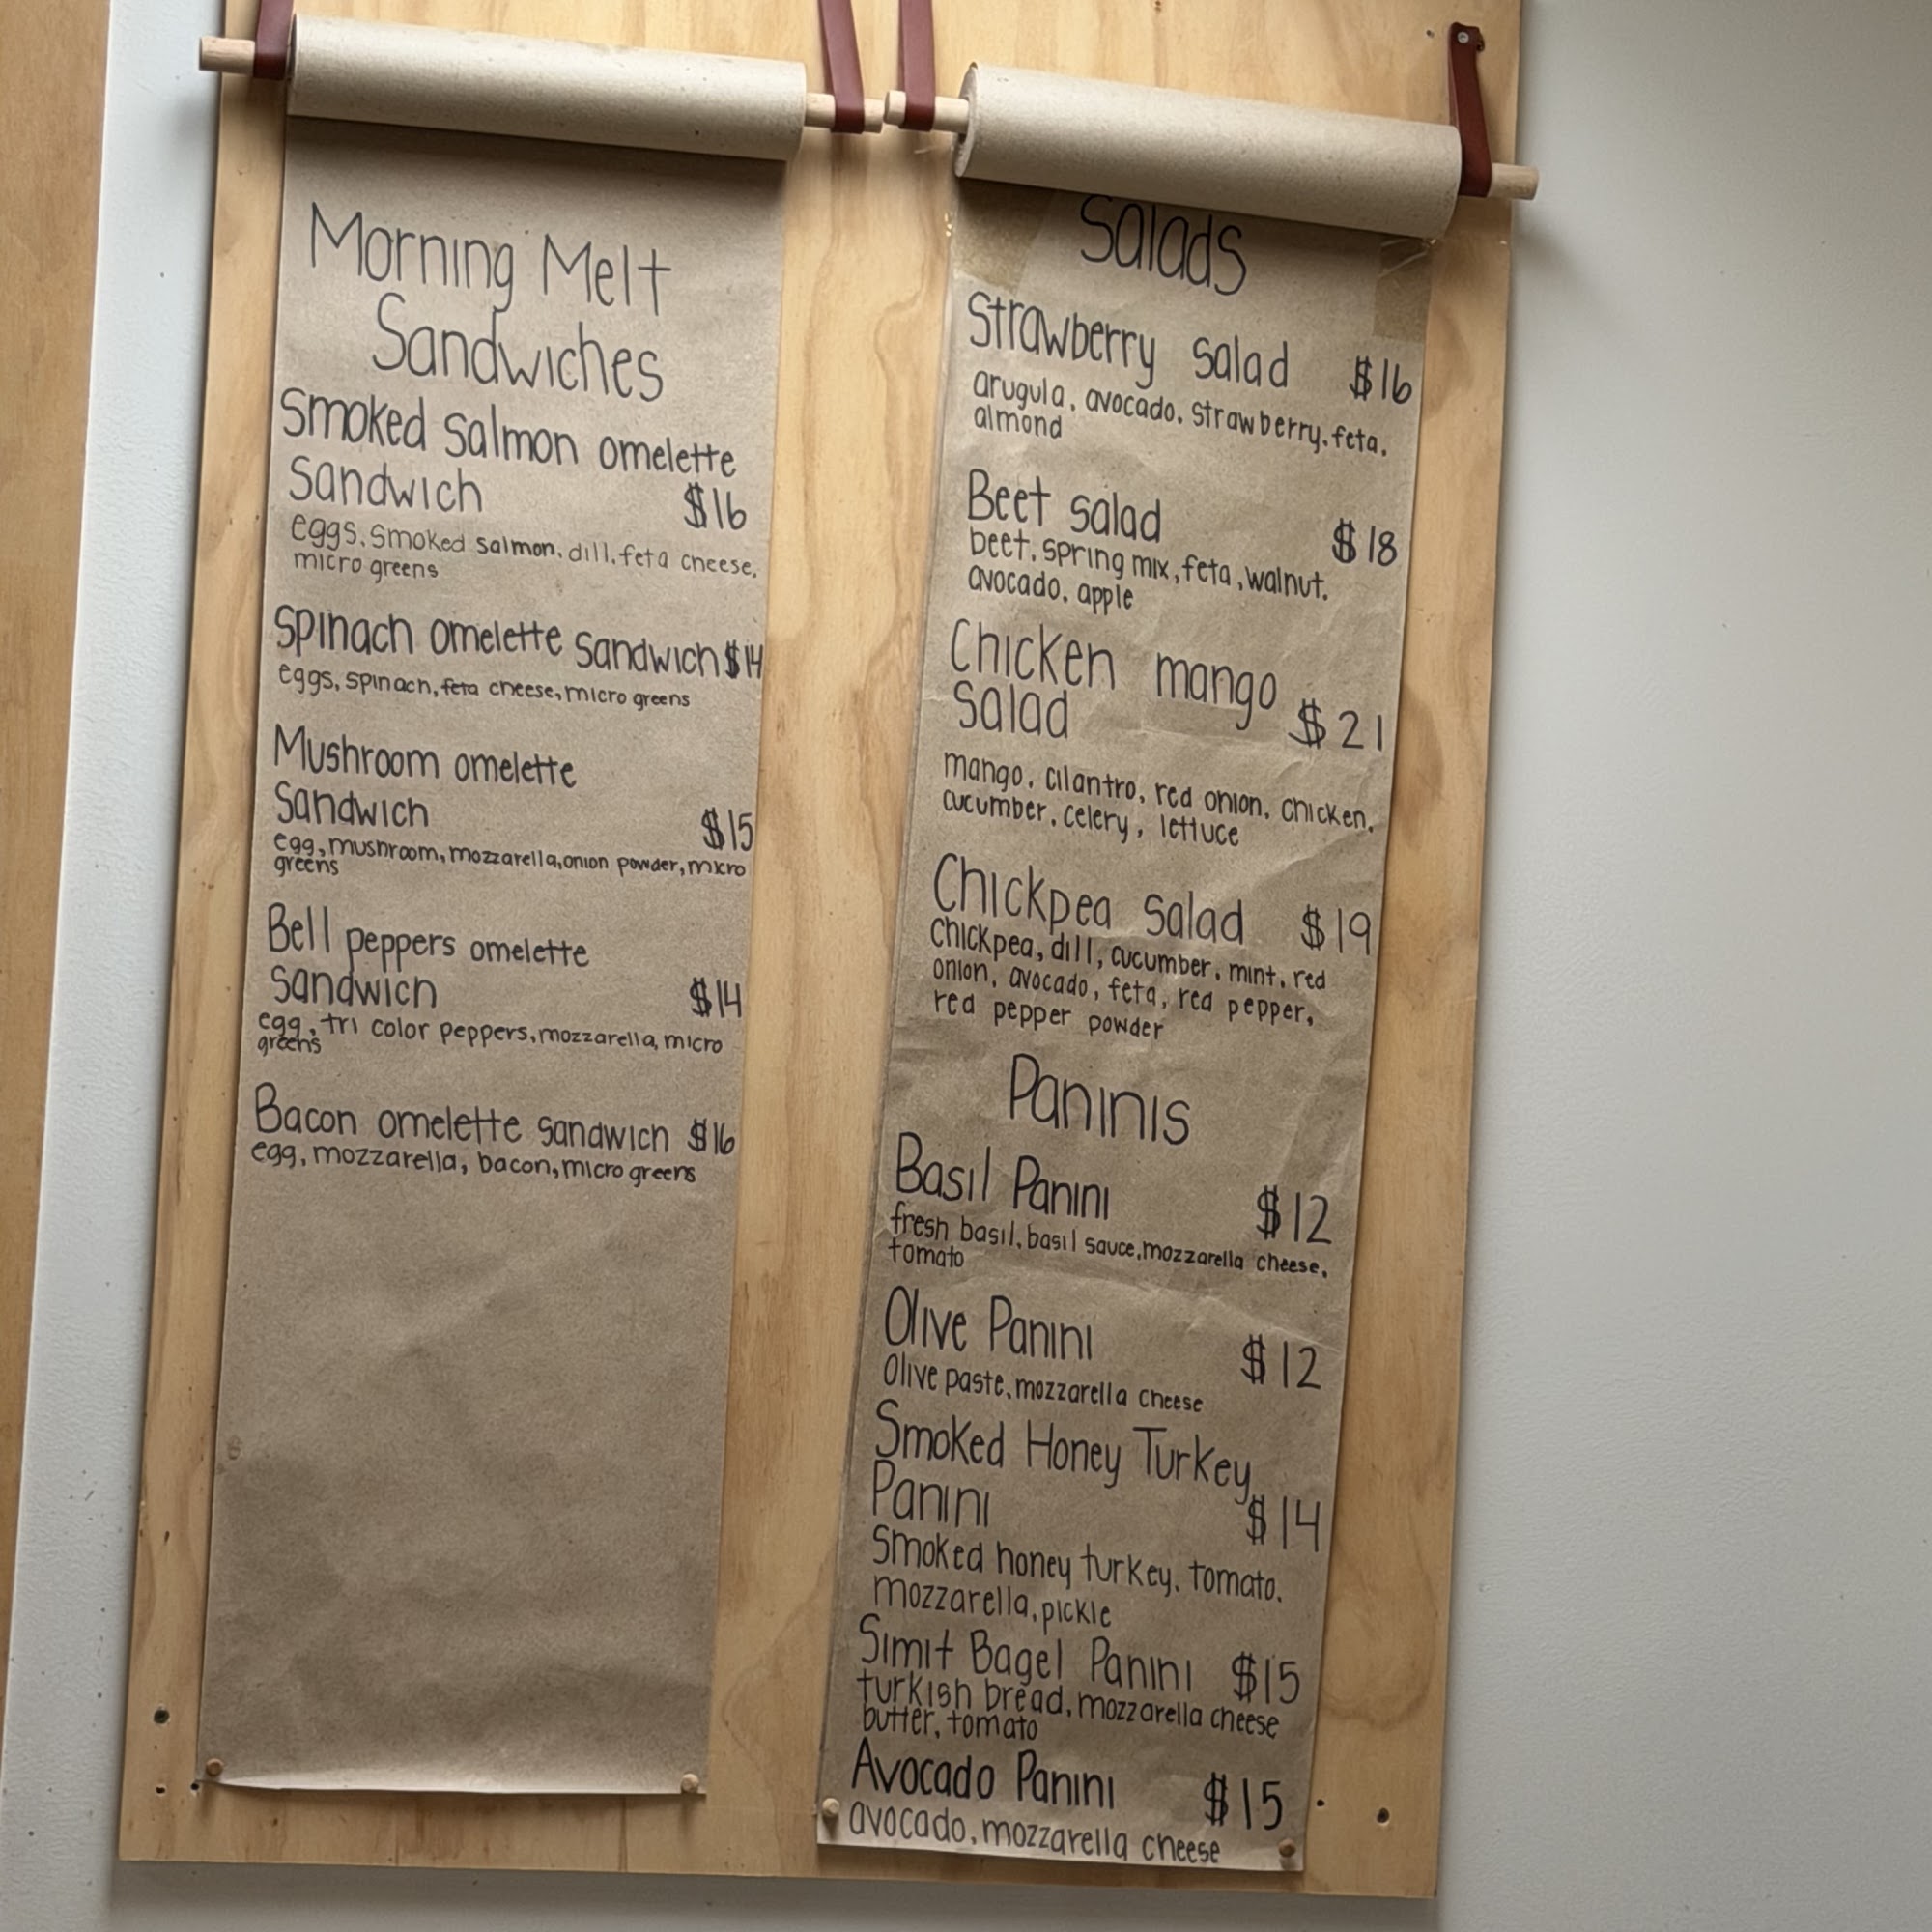 Morning Melt
Sandwiches
Smoked Salmon omelette
Sandwich $16
eggs, smoked salmon, dill, feta cheese,
micro greens
Spinach omelette sandwich $14
eggs, spinach, feta cheese, micro greens
Mushroom omelette
Sandwich $15
egg, mushroom, mozzarella, onion powder, micro
greens
Bell peppers omelette
Sandwich $14
egg, tri color peppers, mozzarella, micro
greens
Bacon omelette sandwich $16
egg, mozzarella, bacon, micro greens
Salads
Strawberry salad $16
arugula, avocado, strawberry, feta,
almond
Beet salad $18
beet, spring mix, feta, walnut,
avocado, apple
Chicken mango
Salad $21
mango, cilantro, red onion, chicken,
cucumber, celery, lettuce
Chickpea salad $19
Chickpea, dill, cucumber, mint, red
onion, avocado, feta, red pepper,
red pepper powder
Paninis
Basil Panini $12
fresh basil, basil sauce, mozzarella cheese,
tomato
Olive Panini $12
Olive paste, mozzarella cheese
Smoked Honey Turkey
Panini $14
Smoked honey turkey, tomato,
mozzarella, pickle
Simit Bagel Panini $15
turkish bread, mozzarella cheese
butter, tomato
Avocado Panini $15
avocado, mozzarella cheese